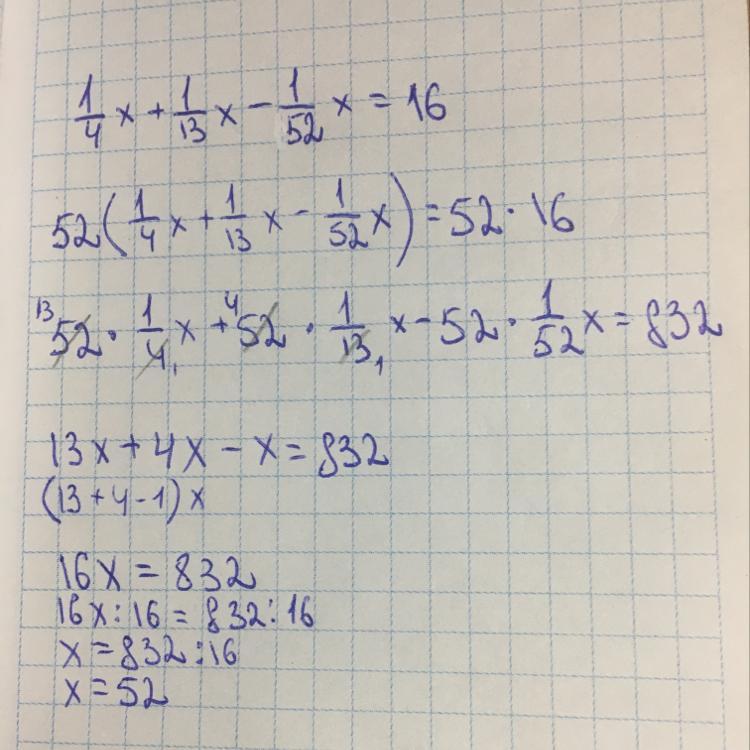 1/4 x + 1/13 x - 1/52 x = 16
52(1/4 x + 1/13 x - 1/52 x) = 52 · 16
13 52 · 1/4 1 x + 4 52 · 1/13 1 x - 52 · 1/52 x = 832
13x + 4x - x = 832
(13 + 4 - 1) x
16x = 832
16x : 16 = 832 : 16
x = 832 : 16
x = 52